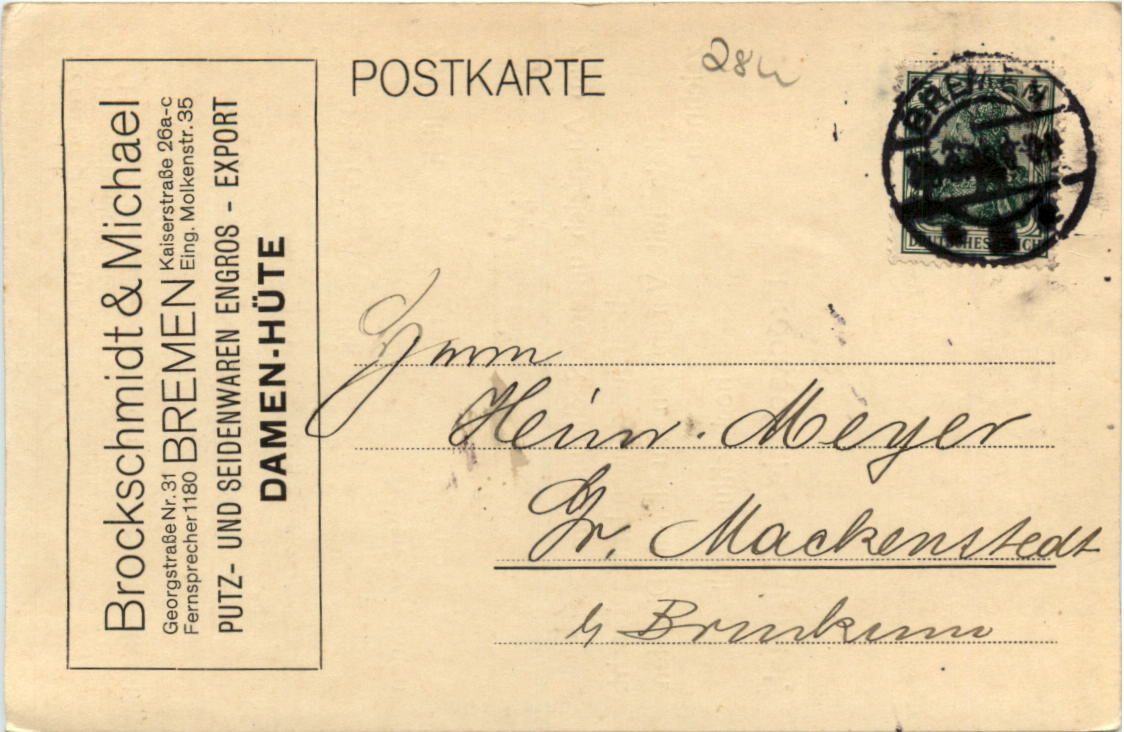 POSTKARTE
28
BREMEN
DEUTSCHES REICH
Brockschmidt & Michael
Georgstraße Nr. 31
Fernsprecher 1180
BREMEN
Kaiserstraße 26a-c
Eing. Molkenstr. 35
PUTZ- UND SEIDENWAREN ENGROS - EXPORT
DAMEN-HÜTE
Herrn
Heinr. Meyer
Gr. Mackenstedt
b/ Brinkum